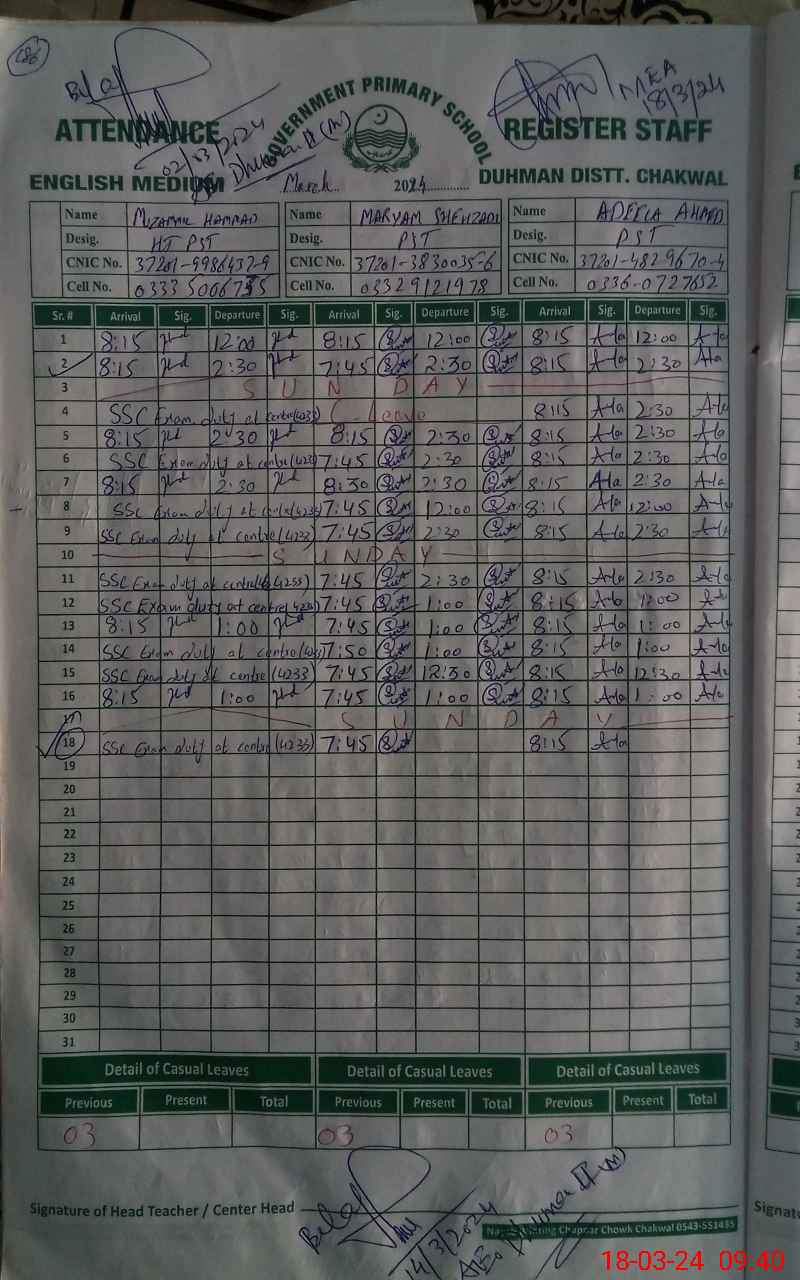 686
Bilal
MEA
18/3/24
GOVERNMENT PRIMARY SCHOOL
ATTENDANCE REGISTER STAFF
02/03/2024
Dhuman II (M)
ENGLISH MEDIUM March 2024 DUHMAN DISTT. CHAKWAL
Name HAMMAD Name MARYAM SHEHZADI Name ADEELA AHMED
Desig. HT PST Desig. PST Desig. PST
CNIC No. 37201-9986437-9 CNIC No. 37201-3830035-6 CNIC No. 37201-4829670-4
Cell No. 0333 5006755 Cell No. 03329121978 Cell No. 0336-0727652
Sr. # Arrival Sig. Departure Sig. Arrival Sig. Departure Sig. Arrival Sig. Departure Sig.
1 8:15 12:00 8:15 12:00 8:15 A-la 12:00 A-la
2 8:15 2:30 7:45 2:30 8:15 A-la 2:30 A-la
3 SUNDAY
4 SSC Exam duty at centre(4233) C-leave 8:15 A-la 2:30 A-la
5 8:15 2:30 8:15 2:30 8:15 A-la 2:30 A-la
6 SSC Exam duty at centre(4233) 7:45 2:30 8:15 A-la 2:30 A-la
7 8:15 2:30 8:30 2:30 8:15 A-la 2:30 A-la
8 SSC Exam duty at centre(4233) 7:45 12:00 8:15 A-la 12:00 A-la
9 SSC Exam duty at centre(4233) 7:45 2:30 8:15 A-la 2:30 A-la
10 SUNDAY
11 SSC Exam duty at centre(4233) 7:45 2:30 8:15 A-la 2:30 A-la
12 SSC Exam duty at centre(4233) 7:45 1:00 8:15 A-la 1:00 A-la
13 8:15 1:00 7:45 1:00 8:15 A-la 1:00 A-la
14 SSC Exam duty at centre(4233) 7:50 1:00 8:15 A-la 1:00 A-la
15 SSC Exam duty at centre (4233) 7:45 12:30 8:15 A-la 12:30 A-la
16 8:15 1:00 7:45 1:00 8:15 A-la 1:00 A-la
17 SUNDAY
18 SSC Exam duty at centre(4233) 7:45 8:15 A-la
19
20
21
22
23
24
25
26
27
28
29
30
31
Detail of Casual Leaves Detail of Casual Leaves Detail of Casual Leaves
Previous Present Total Previous Present Total Previous Present Total
03 03 03
Signature of Head Teacher / Center Head
Bilal
14/3/2024
AEO Dhuman II (M)
Chappar Chowk Chakwal 0543-551435
Signat
18-03-24 09:40